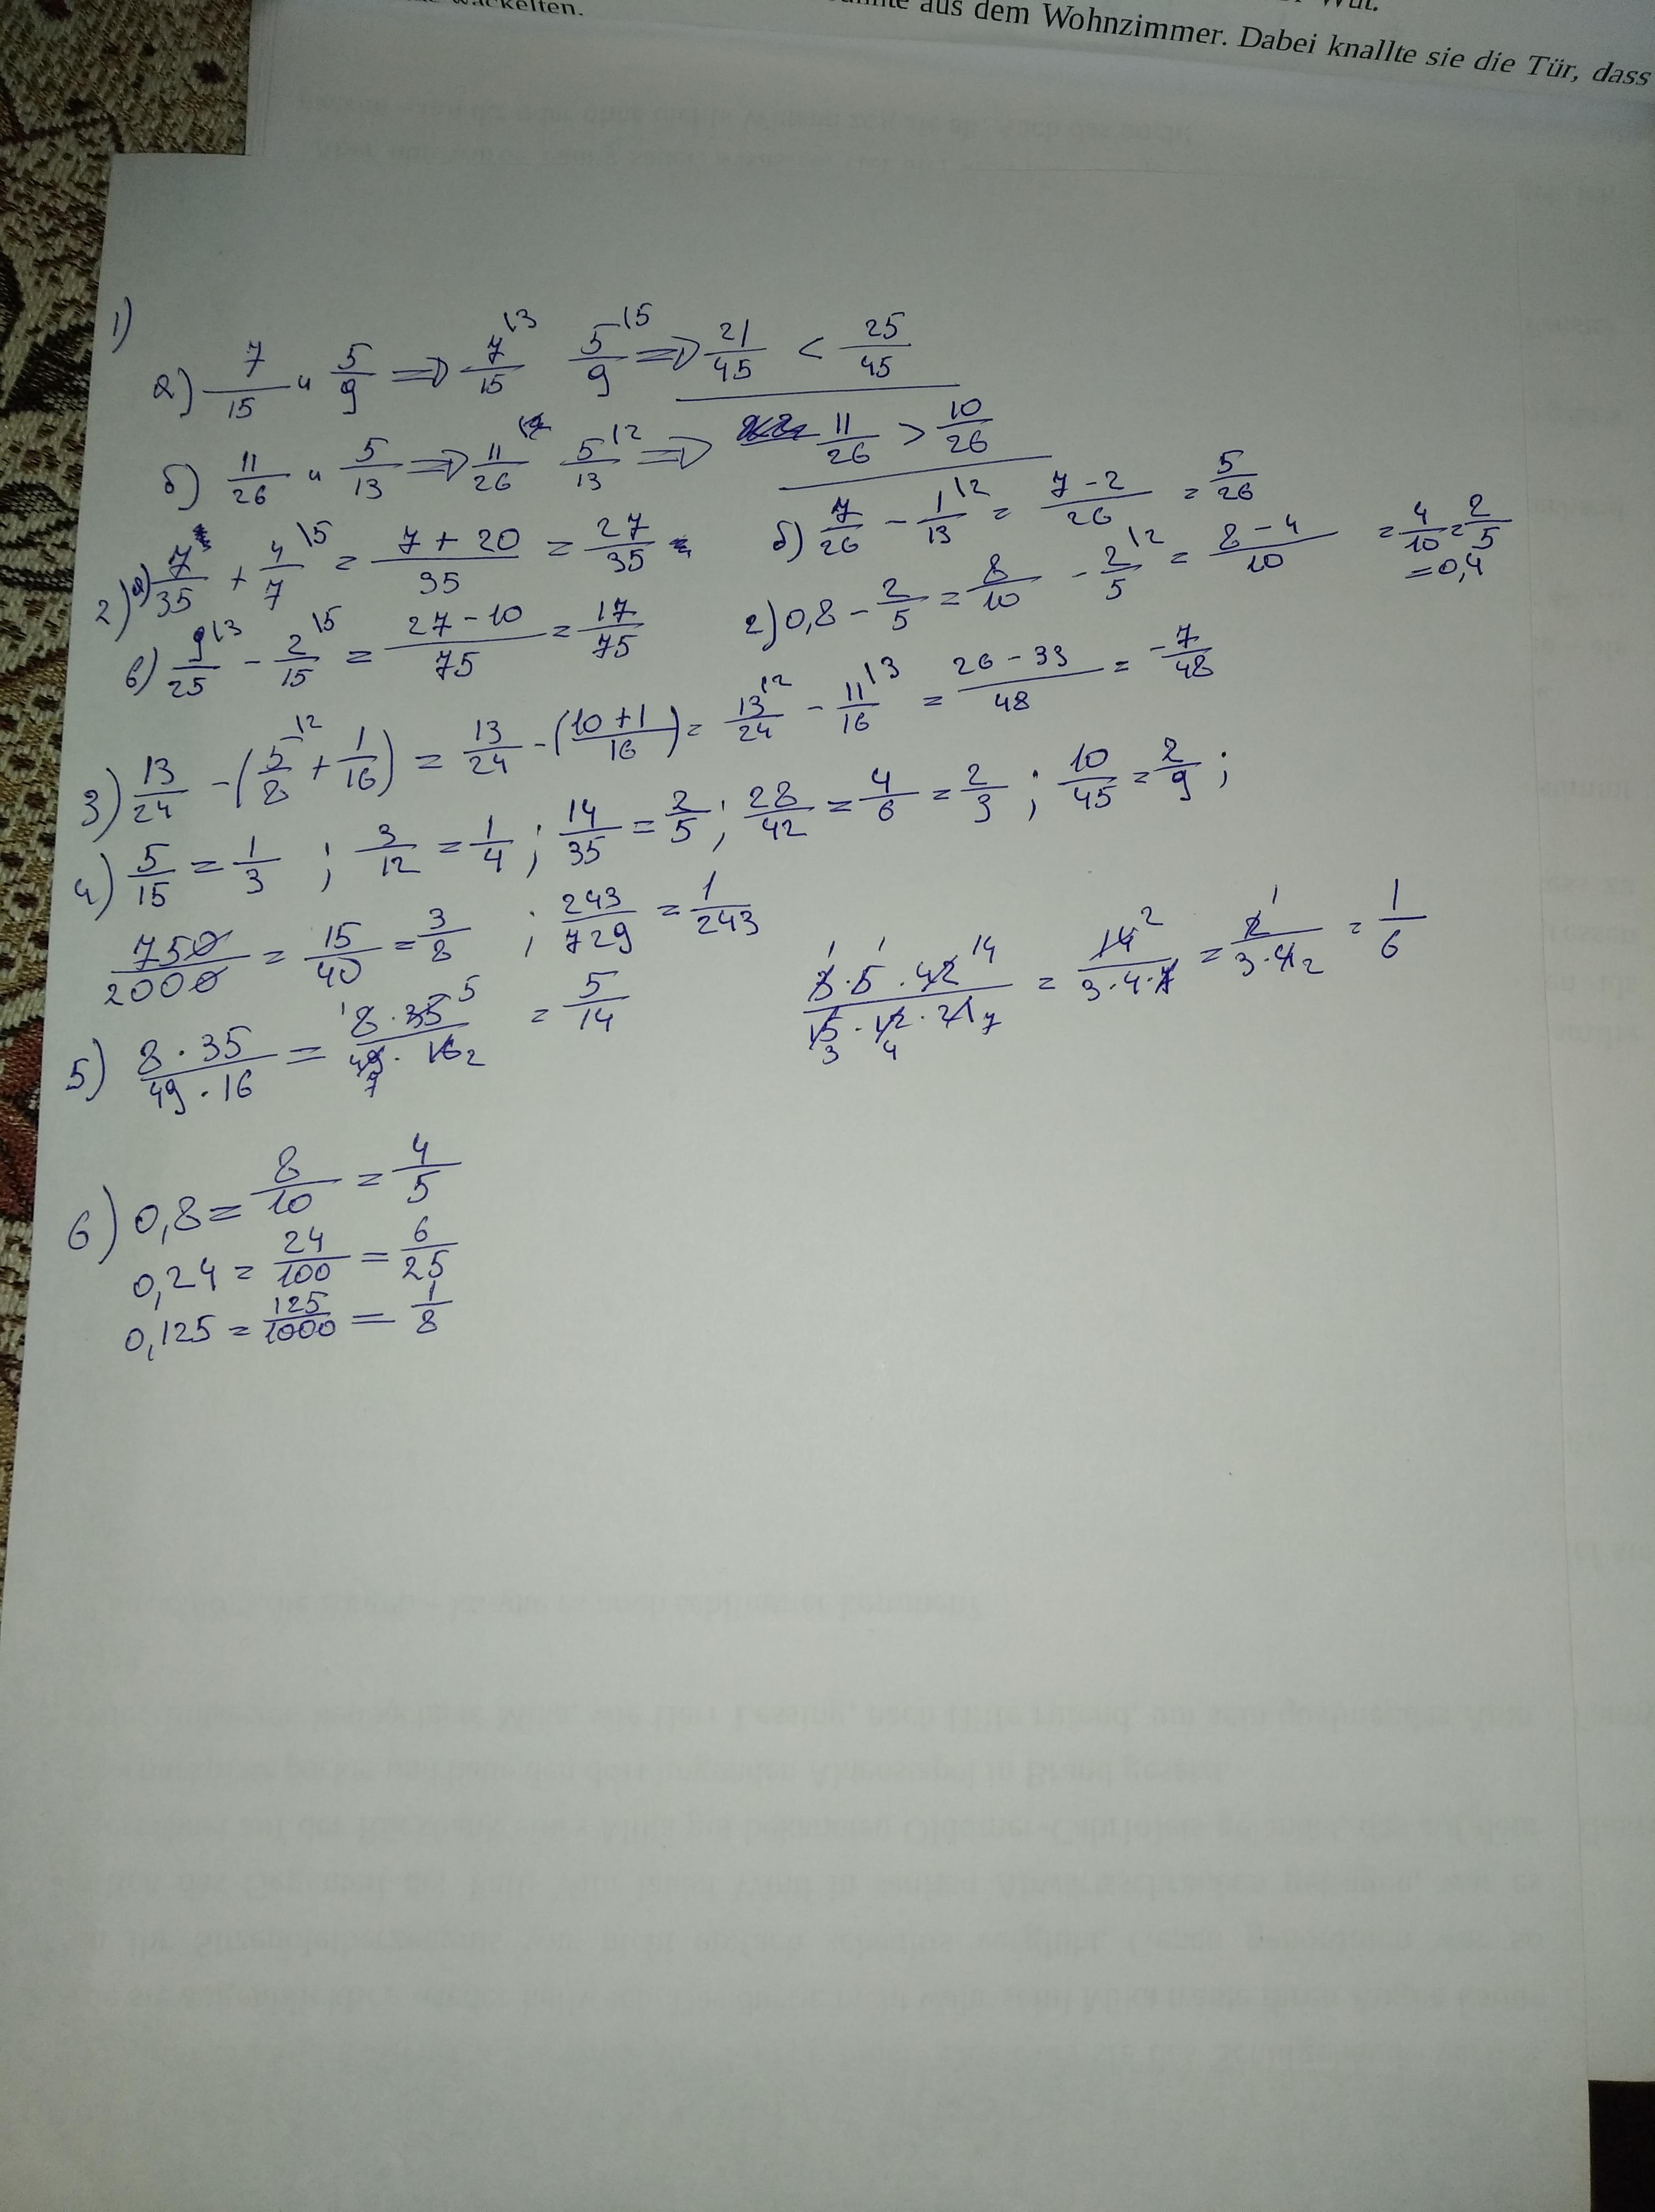 wackelten.
aus dem Wohnzimmer. Dabei knallte sie die Tür, dass
1)
а) 7/15 и 5/9 ⇒ 7/15 \3 5/9 \5 ⇒ 21/45 < 25/45
б) 11/26 и 5/13 ⇒ 11/26 5/13 \2 ⇒ 11/26 > 10/26
2) а) 7/35 + 4/7 \5 = 7+20/35 = 27/35
б) 7/26 - 1/13 \2 = 7-2/26 = 5/26
в) 9/25 \3 - 2/15 \5 = 27-10/75 = 17/75
г) 0,8 - 2/5 = 8/10 - 2/5 \2 = 8-4/10 = 4/10 = 2/5
= 0,4
3) 13/24 - (5/8 \2 + 1/16) = 13/24 - (10+1/16) = 13/24 \2 - 11/16 \3 = 26-33/48 = -7/48
4) 5/15 = 1/3 ; 3/12 = 1/4 ; 14/35 = 2/5 ; 28/42 = 4/6 = 2/3 ; 10/45 = 2/9 ;
750/2000 = 15/40 = 3/8 ; 243/729 = 1/243
5) 8·35/49·16 = 1 8·35 5/49 7·16 2 = 5/14
1 1 14 3·5·42/15·12·21 3 4 7 = 14 2/3·4·7 = 2 1/3·4 2 = 1/6
6) 0,8 = 8/10 = 4/5
0,24 = 24/100 = 6/25
0,125 = 125/1000 = 1/8